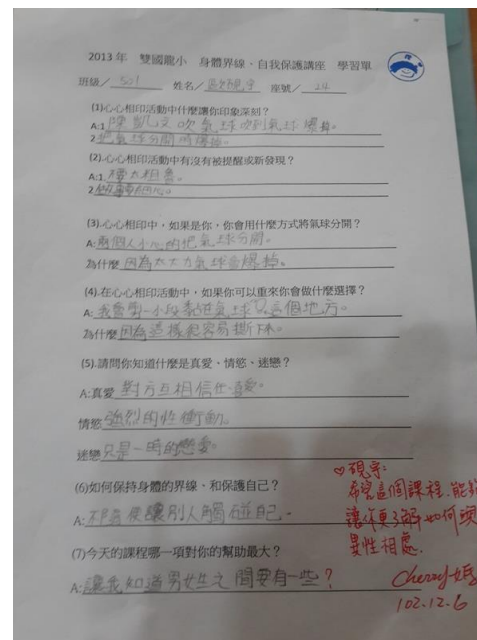 2013 年 雙國龍小 身體界線、自我保護講座 學習單
班級/ 501 姓名/ 硯宇 座號/ 24
(1)心心相印活動中什麼讓你印象深刻?
A:1 陳 文吹氣球吹到氣球爆掉。
2 把氣球分開時爆掉。
(2).心心相印活動中有沒有被提醒或新發現?
A:1.不要太粗魯。
2 做事要細心。
(3).心心相印中,如果是你,你會用什麼方式將氣球分開?
A: 兩個人小心的把氣球分開。
為什麼 因為太大力氣球會爆掉。
(4).在心心相印活動中,如果你可以重來你會做什麼選擇?
A: 我會剪一小段黏在氣球 這個地方。
為什麼 因為這樣起容易撕下來。
(5).請問你知道什麼是真愛、情慾、迷戀?
A:真愛 對方互相信任喜愛。
情慾 強烈的性衝動。
迷戀 只是一時的戀愛。
(6)如何保持身體的界線、和保護自己?
A: 不隨便讓別人觸碰自己。
(7)今天的課程哪一項對你的幫助最大?
A: 讓我知道男女生之間要有一些?
♡硯宇:
希望這個課程,能夠
讓你更了解如何與
異性相處.
Cherry媽
102.12.6